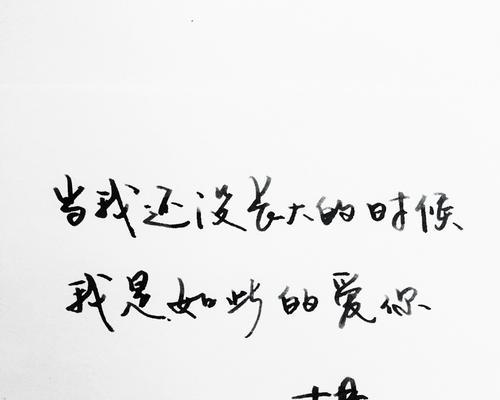 当我还没长大的时候
我是如此的爱你